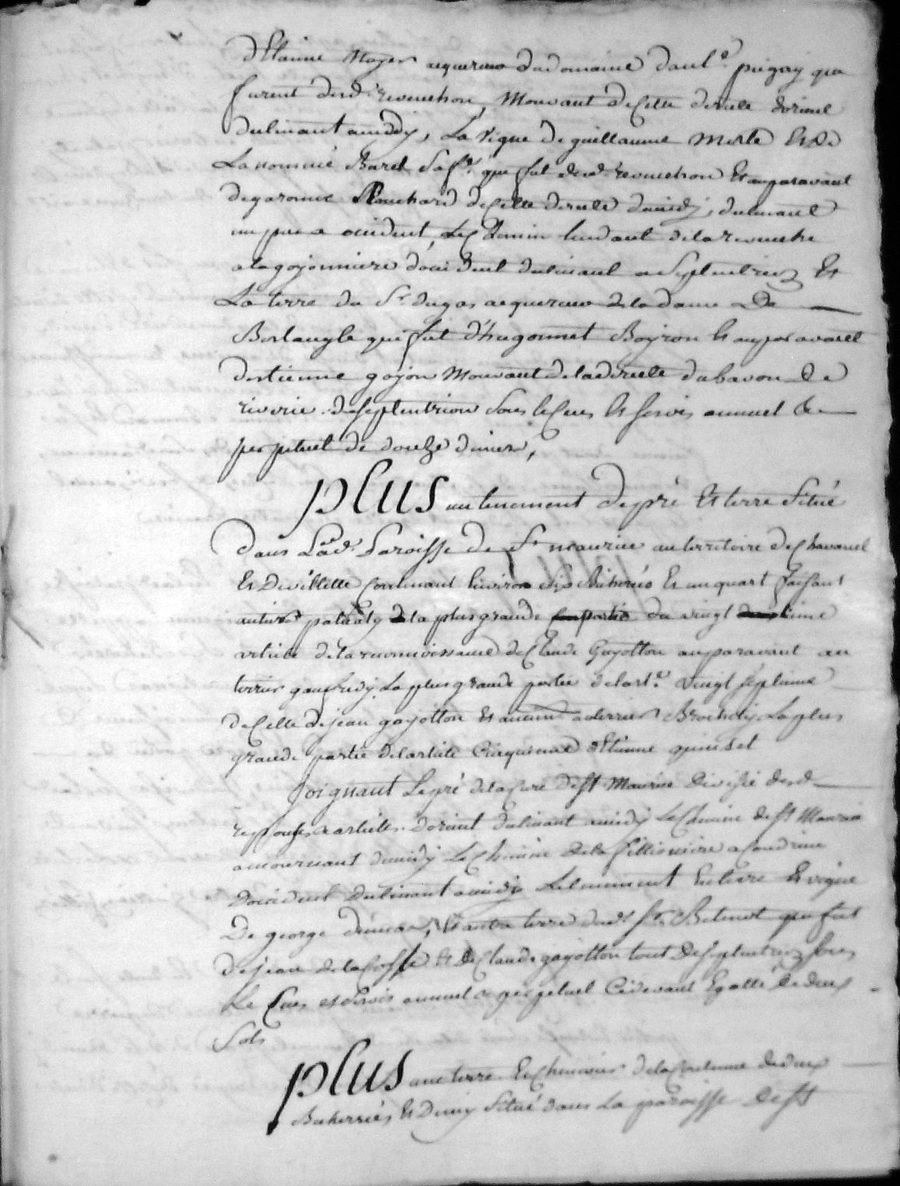 d'Etienne Moyer acquereur du domaine dud. S.r prigay qui
furent dud. revenchon, Mouvant de cette directe d'orient
declinant a midy, La vigne de guillaume Merle et de
La nommé Burel Sa f.e qui fut dud. revenchon et auparavant
de garonne Blanchard de cette directe d'midy, declinant
un peu a occident, Le Chemin tendant de la revenche
a la gojonniere d'occident declinant a Septentrion Et
La terre du S.r dugas acquereur de la dame De
Berlangle qui fut d'hugonnet Boyron et auparavant
d'estienne gojon Mouvant de la directe du baron de
riverie de Septentrion Sous le Cens et Servis annuel &
perpetuel de douze deniers,
plus un tenement de pré et terre Situé
dans La d. Paroisse de S.t maurice au territoire de Chavanel
Et de villette Contenant Environ Bicherées et un quart faisant
de la plus grande partie du vingt
article de la reconnoissance de Claude Gayotton auparavant au
terrier gauffridy La plus grande partie de l'art.e vingt septieme
de Celle de jean gayotton et au terrier La plus
grande partie de l'article Cinquieme d'Etienne
Joignant Le pré de la Cure de St Maurice divisé desd.
reponses articles d'orient declinant a midy Le Chemin de St Maurice
d'midy Le Chemin de la fillioniere a
d'occident declinant a midy Le tenement En terre et vigne
De george autre terre dud. S.r qui fut
de jean de la fosse et de Claude gayotton tout de Septentrion Sous
Le Cens et Servis annuel & perpetuel Cidevant Egallé de deux
Sols
plus une terre et Cheneviere de la Contenue de deux
Bicherrées et demy Situé dans La paroisse de St